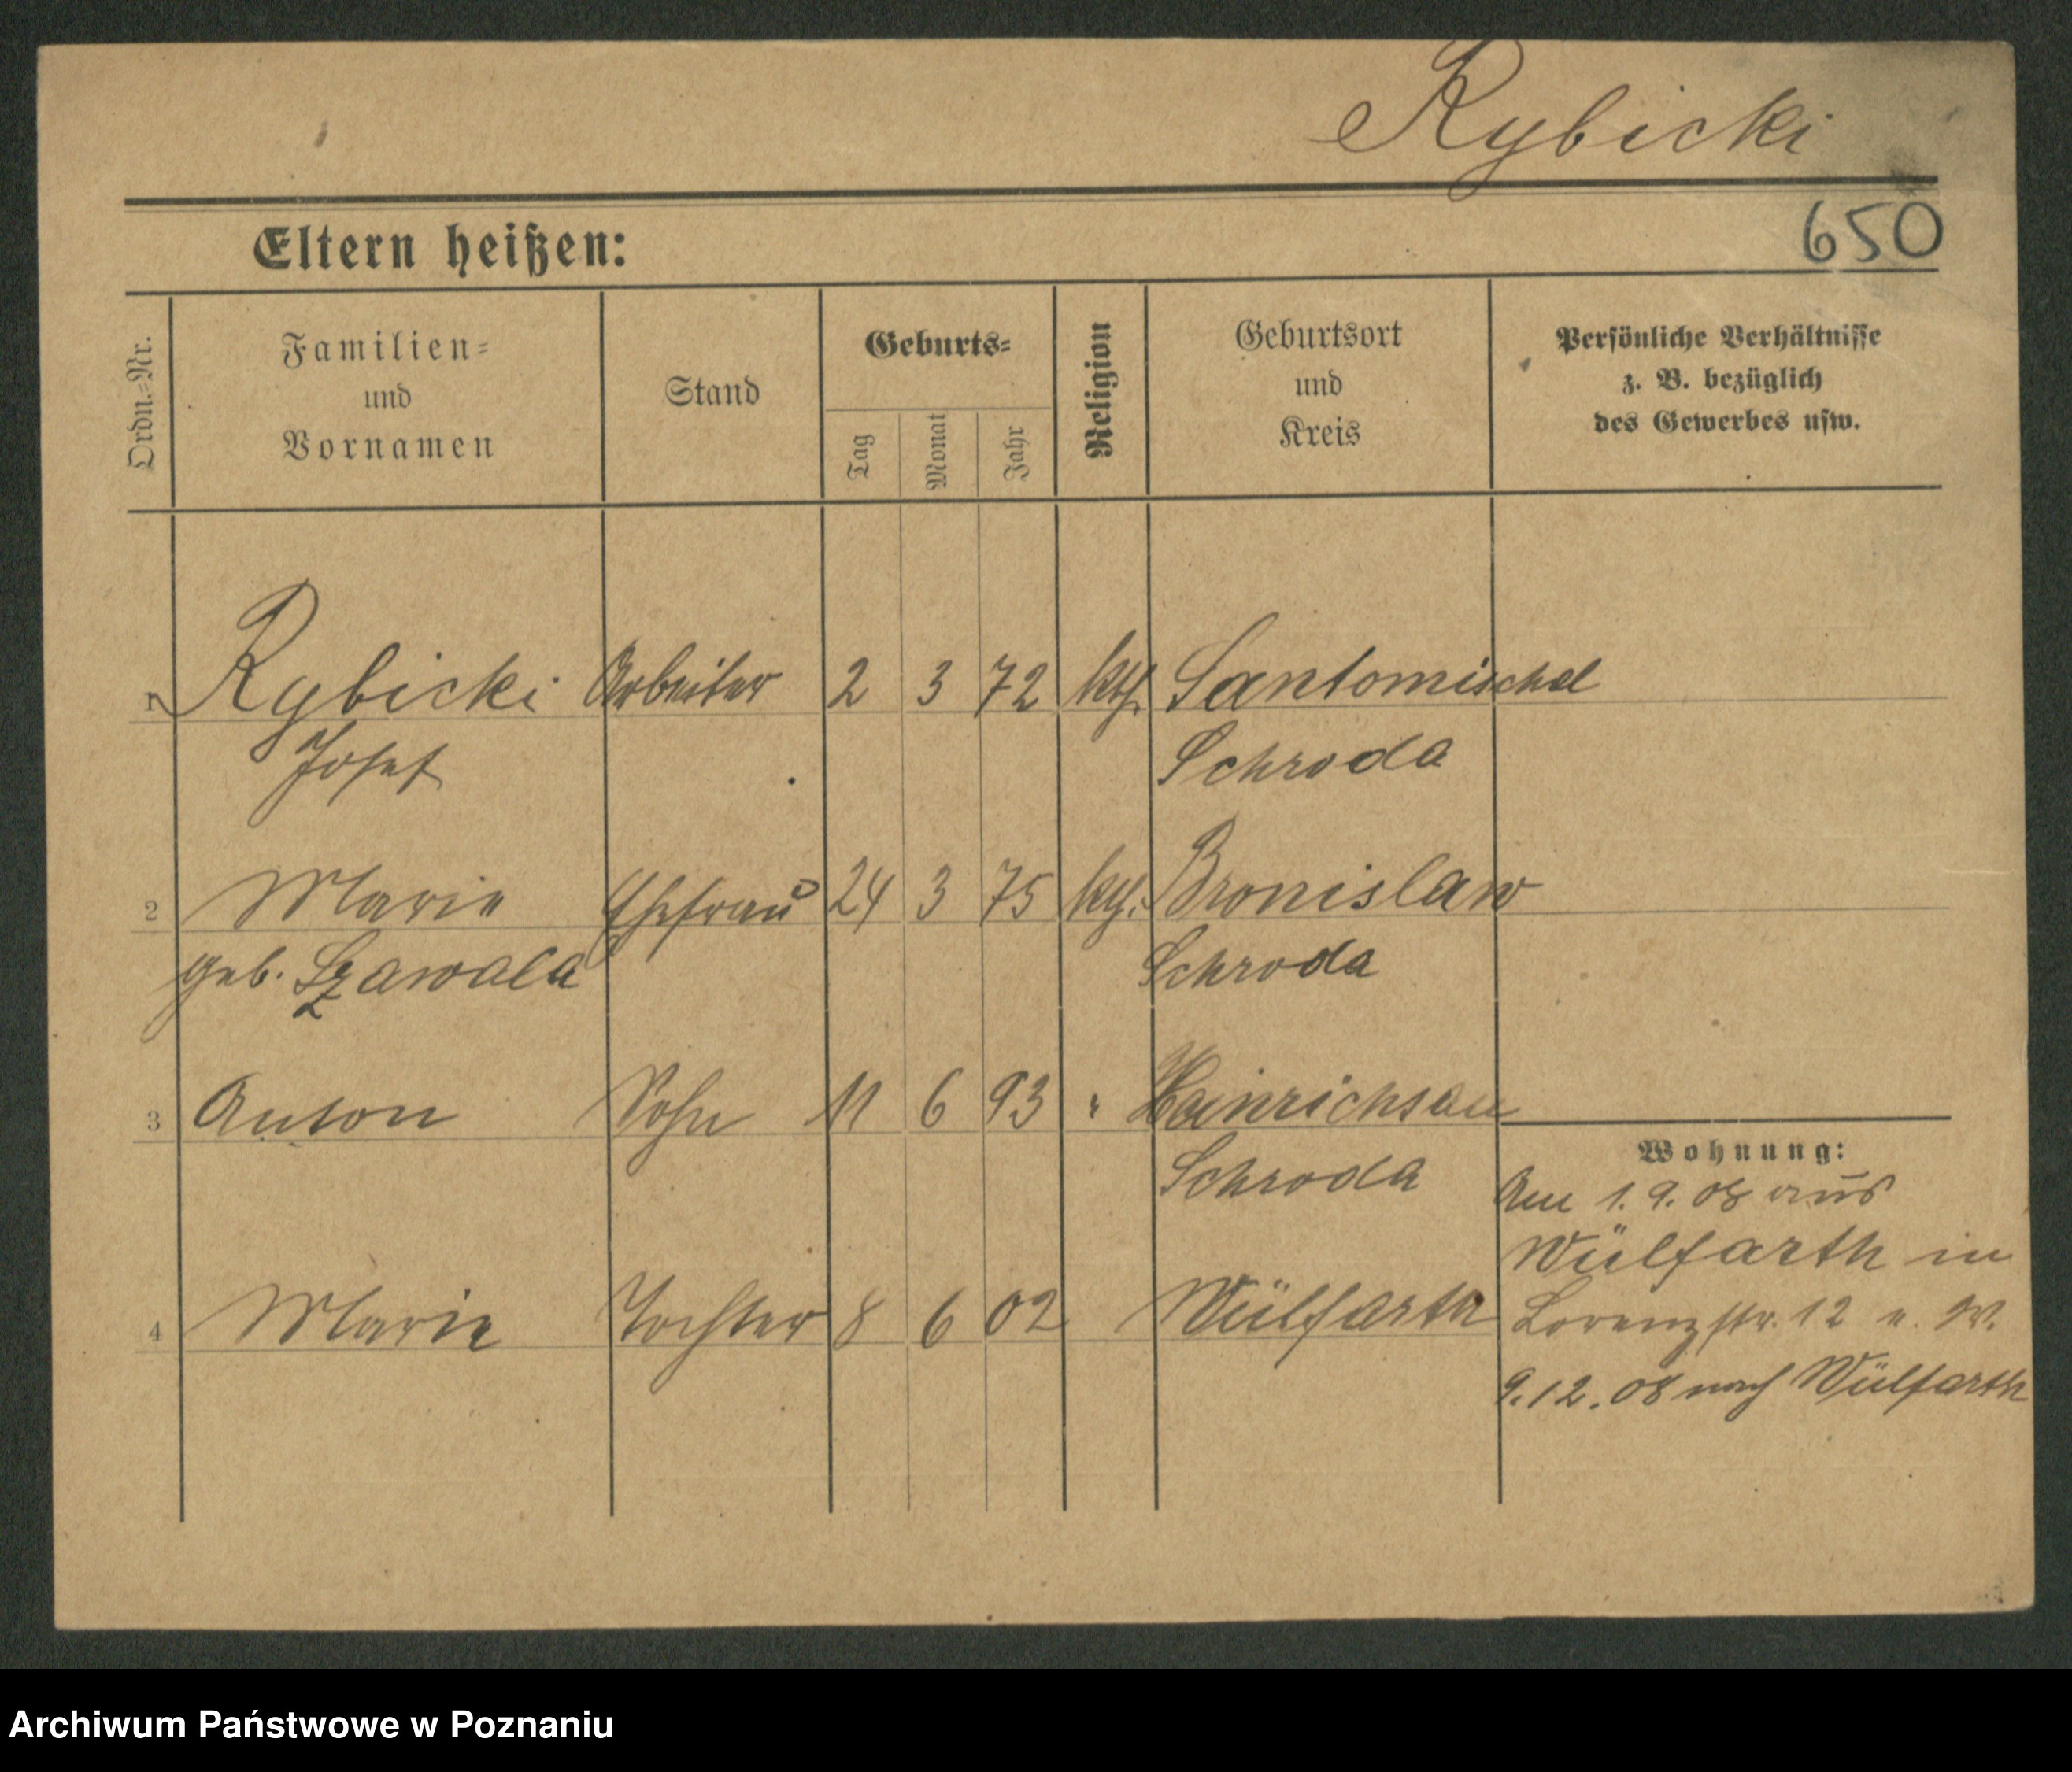 Rybicki
650
Eltern heißen:
Ordn.=Nr.
Familien=
und
Vornamen
Stand
Geburts=
Tag
Monat
Jahr
Religion
Geburtsort
und
Kreis
Persönliche Verhältnisse
z. B. bezüglich
des Gewerbes usw.
1 Rybicki Arbeiter 2 3 72 kth. Santomischel
Josef Schroda
2 Marie Ehefrau 24 3 75 kth. Bronislaw
geb. Szawala Schroda
3 Anton Sohn 11 6 93 " Heinrichsau
Schroda
Wohnung:
Am 1.9.08 aus
Wülfarth in
4 Marie Tochter 8 6 02 Wülfarth
Lorenzstr. 12 u. W.
9.12.08 nach Wülfarth
Archiwum Państwowe w Poznaniu